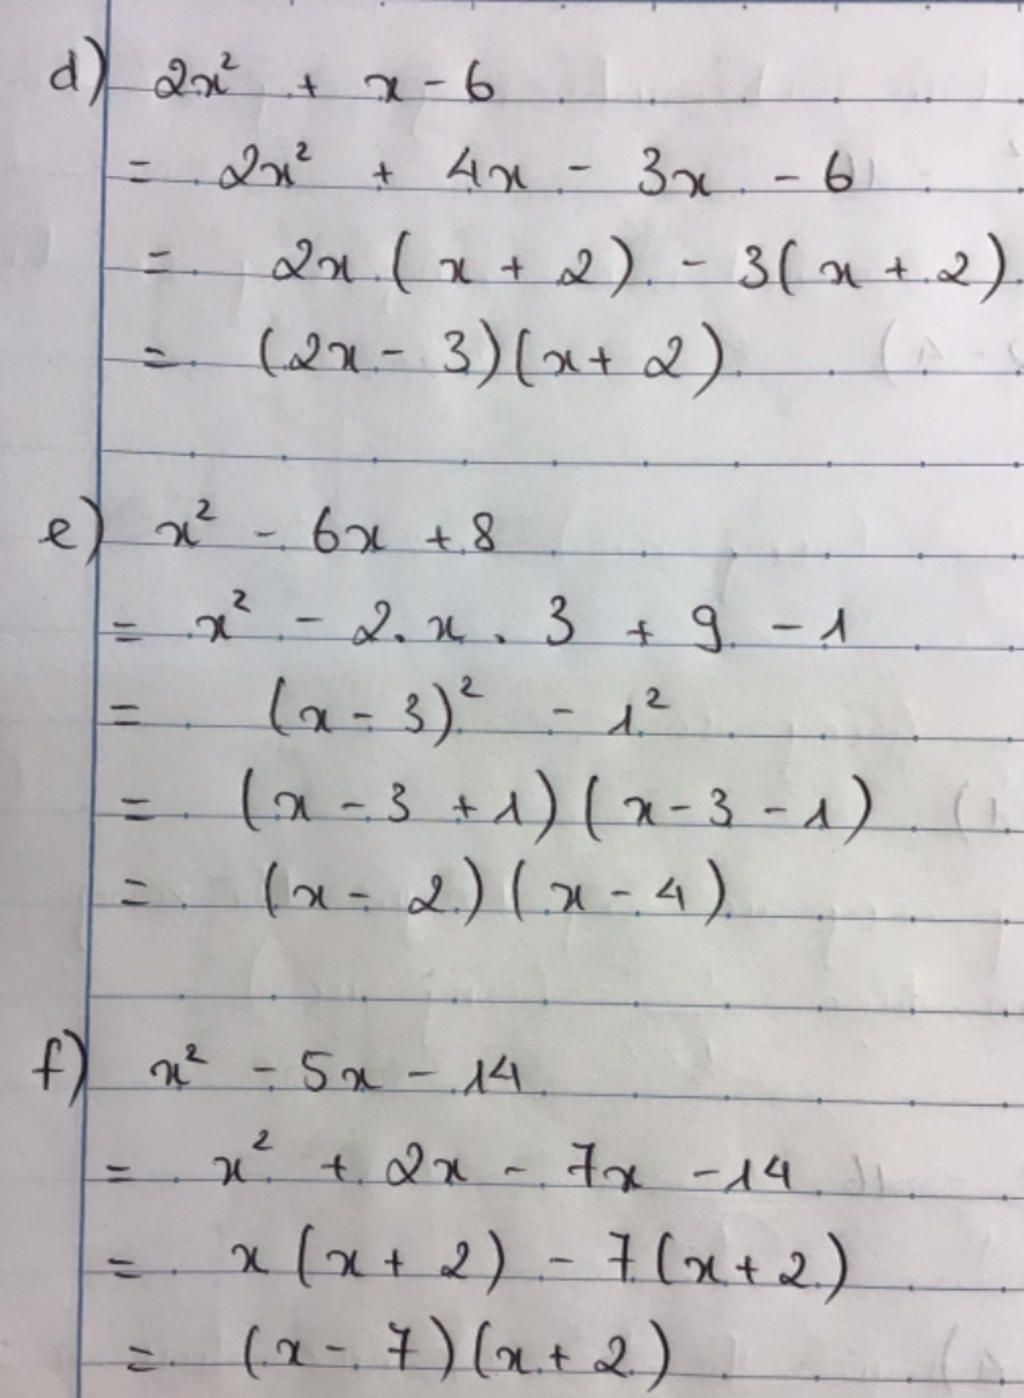 d) 2x² + x - 6
= 2x² + 4x - 3x - 6
= 2x (x + 2) - 3(x + 2)
= (2x - 3)(x + 2)
e) x² - 6x + 8
= x² - 2.x.3 + 9 - 1
= (x - 3)² - 1²
= (x - 3 + 1)(x - 3 - 1)
= (x - 2)(x - 4)
f) x² - 5x - 14
= x² + 2x - 7x - 14
= x(x + 2) - 7(x + 2)
= (x - 7)(x + 2)